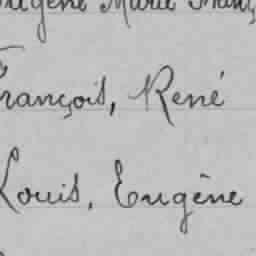 Eugène Marie Franç
François, René
Louis, Eugène